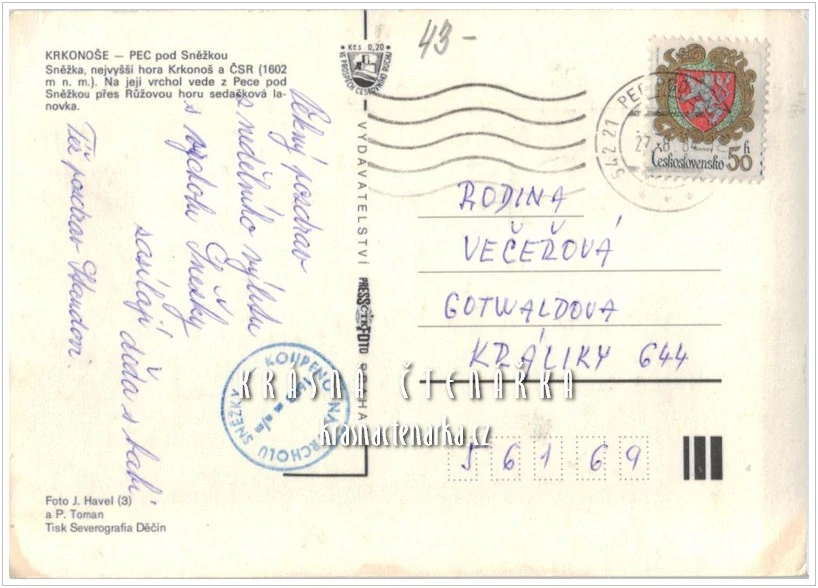 KRKONOŠE — PEC pod Sněžkou
Sněžka, nejvyšší hora Krkonoš a ČSR (1602
m n. m.). Na její vrchol vede z Pece pod
Sněžkou přes Růžovou horu sedačková la-
novka.
Pěkný pozdrav
z nedělního výletu
s vrcholu Sněžky
zasílají děda s babi.
Též pozdrav Standovi.
KOUPENO NA VRCHOLU SNĚŽKY
Foto J. Havel (3)
a P. Toman
Tisk Severografia Děčín
Kčs 0,20
VYDAVATELSTVÍ PRESSFOTO PRAHA
43-
542 21 PEC
27.-8.84
Československo 50 h
RODINA
VEČEŘOVÁ
GOTWALDOVA
KRÁLIKY 644
56169
KRÁSNÁ ČTENÁŘKA
krasnactenarka.cz